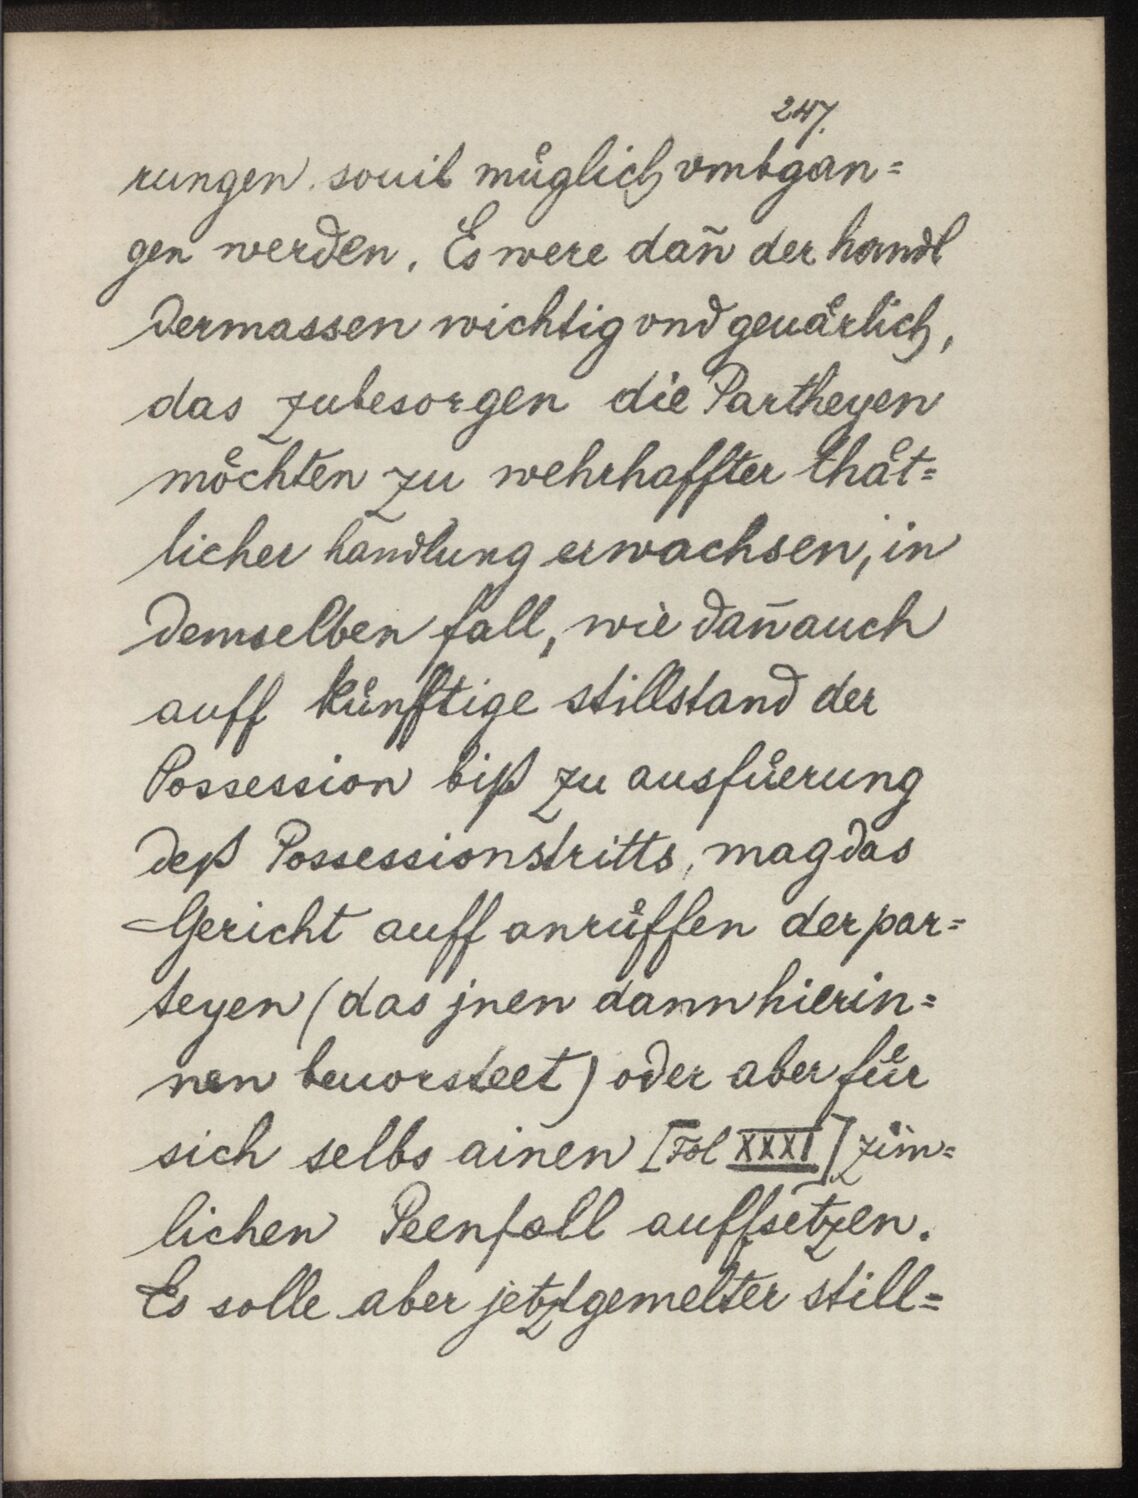 247.
rungen souil müglich vmbgan=
gen werden. Es were dan̄ der handl
dermassen wichtig vnd geuärlich,
das zubesorgen die Partheyen
möchten zu wehrhaffter thät=
licher handlung erwachsen, in
demselben fall, wie dan̄ auch
auff künfftige stillstand der
Possession biß zu ausfüerung
deß Possessionstritts, mag das
Gericht auff anrüffen der par=
teyen (das jnen dann hierin=
nen beuorsteet) oder aber für
sich selbs ainen [Fol XXXI] zim=
lichen Peenfall auffsetzen.
Es solle aber jetztgemelter still=